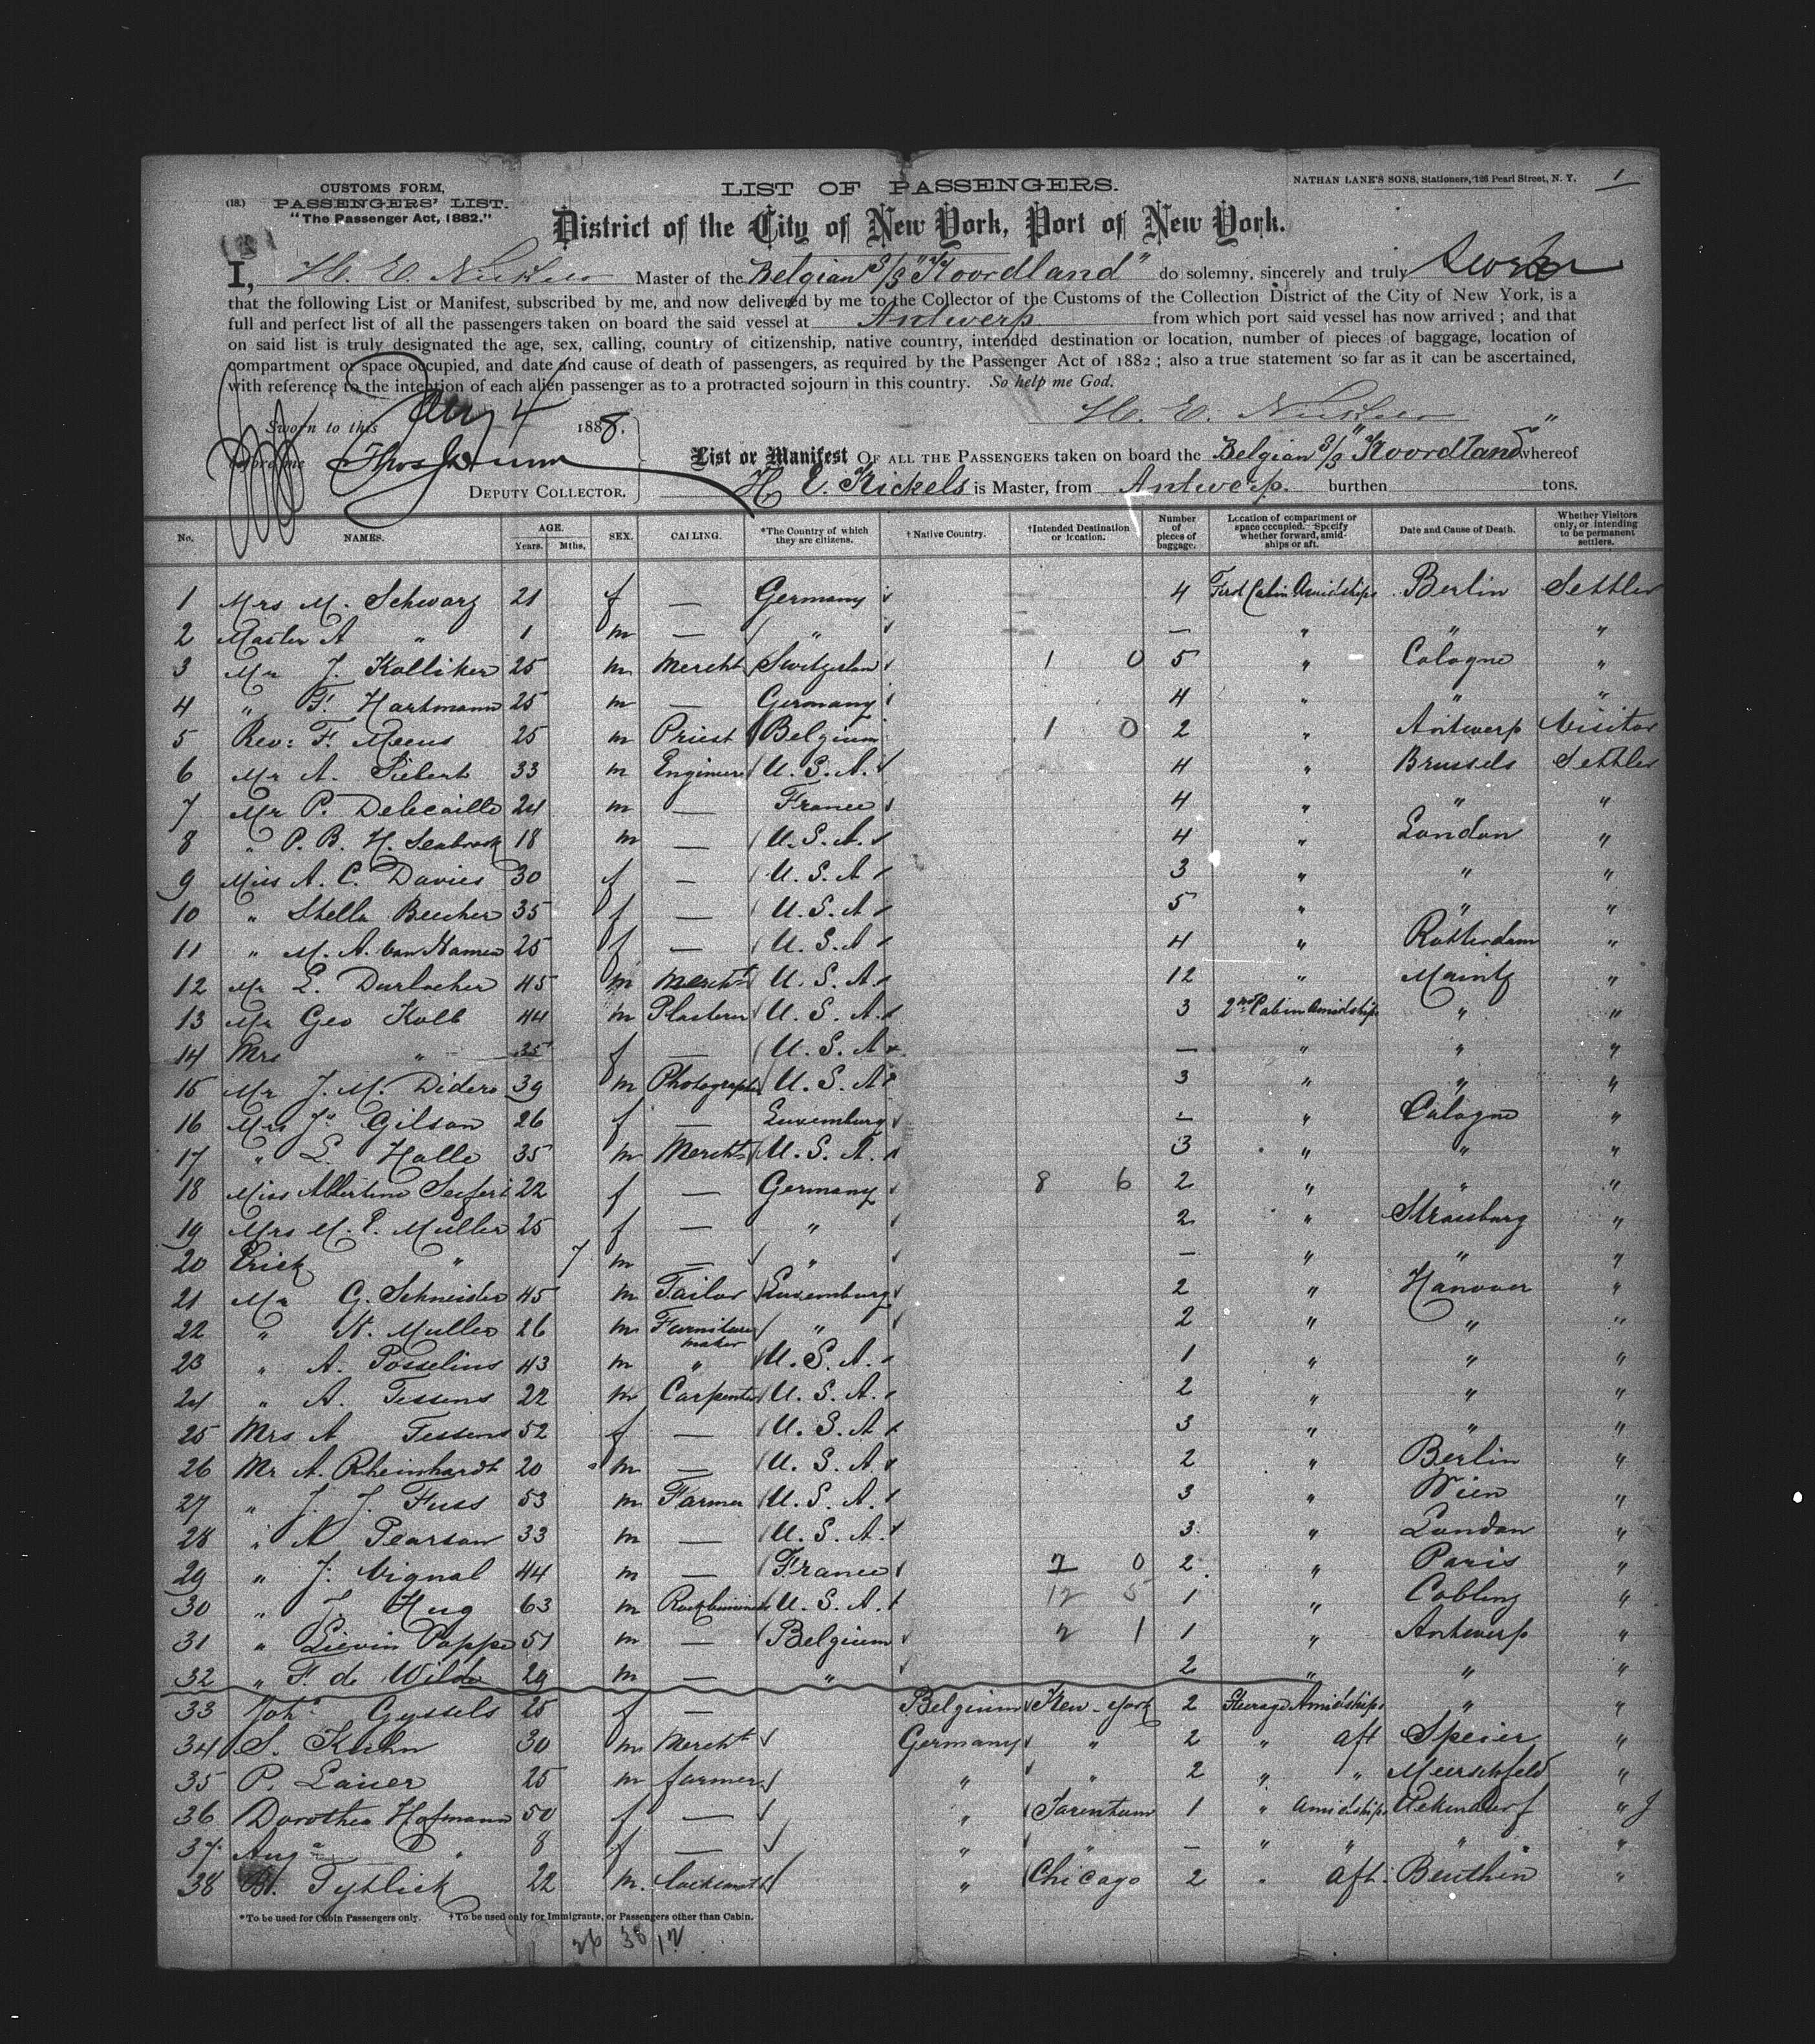 CUSTOMS FORM,
(18.) PASSENGERS' LIST.
"The Passenger Act, 1882."
LIST OF PASSENGERS.
NATHAN LANE'S SONS, Stationers, 126 Pearl Street, N. Y.
1
District of the City of New York, Port of New York.
I, H. E. Nickels Master of the Belgian S/S "Noordland" do solemny, sincerely and truly swear
that the following List or Manifest, subscribed by me, and now delivered by me to the Collector of the Customs of the Collection District of the City of New York, is a
full and perfect list of all the passengers taken on board the said vessel at Antwerp from which port said vessel has now arrived ; and that
on said list is truly designated the age, sex, calling, country of citizenship, native country, intended destination or location, number of pieces of baggage, location of
compartment or space occupied, and date and cause of death of passengers, as required by the Passenger Act of 1882 ; also a true statement so far as it can be ascertained,
with reference to the intention of each alien passenger as to a protracted sojourn in this country. So help me God.
H. E. Nickels
Sworn to this 4 1888.
before me
DEPUTY COLLECTOR.
List or Manifest OF ALL THE PASSENGERS taken on board the Belgian S/S "Noordland" whereof
H. E. Nickels is Master, from Antwerp. burthen tons.
No. NAMES. AGE. Years. Mths. SEX. CALLING. *The Country of which they are citizens. †Native Country. †Intended Destination or location. Number of pieces of baggage. Location of compartment or space occupied. Specify whether forward, amidships or aft. Date and Cause of Death. Whether Visitors only, or intending to be permanent settlers.
1 Mrs M. Schwarz 21 f — Germany 4 First Cabin Amidships Berlin Settler
2 Master A " 1 m — " — " " "
3 Mr J. Kolliker 25 m Mercht Switzerlan 1 0 5 " Cologne "
4 " F. Hartmann 25 m — Germany 4 " " "
5 Rev: F. Meeus 25 m Priest Belgium 1 0 2 " Antwerp Visitor
6 Mr A. Siebert 33 m Engineer U. S. A. 4 " Brussels Settler
7 Mr P. Delecaille 24 m — France 4 " " "
8 " P. B. H. Seabrook 18 m — U. S. A. 4 " London "
9 Miss A. C. Davies 30 f — U. S. A 3 " " "
10 " Stella Beecher 35 f — U. S. A 5 " " "
11 " M. A. Van Namen 25 f — U. S. A 4 " Rotterdam "
12 Mr L. Durlacher 45 m Mercht U. S. A 12 " Maintz "
13 Mr Geo Kolb 44 m Plasterer U. S. A. 3 2nd Cabin Amidships " "
14 Mrs " 35 f — U. S. A — " " "
15 Mr J. M. Didero 39 m Photograph U. S. A 3 " " "
16 Mrs J. Gilson 26 f — Luxemburg — " Cologne "
17 " L. Halle 35 m Mercht U. S. A. 3 " " "
18 Miss Albertine Seifert 22 f — Germany 8 6 2 " " "
19 Mrs M. P. Muller 25 f — " 2 " Strassburg "
20 Erick " 7 m — " — " " "
21 Mr G. Schneider 45 m Tailor Luxemburg 2 " Hanover "
22 " N. Muller 26 m Furniture maker " 2 " " "
23 " A. Posselius 43 m " U. S. A. 1 " " "
24 " A. Tessens 22 m Carpenter U. S. A. 2 " " "
25 Mrs A Tessens 52 f — U. S. A 3 " " "
26 Mr A. Rheinhardt 20 m — U. S. A 2 " Berlin "
27 " J. J. Fuss 53 m Farmer U. S. A. 3 " Wien "
28 " A Pearson 33 m — U. S. A. 3 " London "
29 " J. Vignal 44 m — France 7 0 2 " Paris "
30 " J. Hug 63 m U. S. A. 12 5 1 " Coblenz "
31 " Lievin Poppe 51 m — Belgium 2 1 1 " Antwerp "
32 " F. de Wilde 29 m — " 2 " " "
33 Joha Gyssels 25 f — Belgium New-York 2 Steerage Amidships " "
34 S. Kuhn 30 m Mercht Germany " 2 " aft Speier "
35 P. Lauer 25 m farmer " " 2 " " Meerschfeld "
36 Dorothea Hofmann 50 f — " Tarentum 1 " Amidships "
37 Aug " 8 f — " " — " " " "
38 Tyblick 22 m. Locksmith " Chicago 2 " aft. Beuthen "
*To be used for Cabin Passengers only. †To be used only for Immigrants, or Passengers other than Cabin.
26 38 12